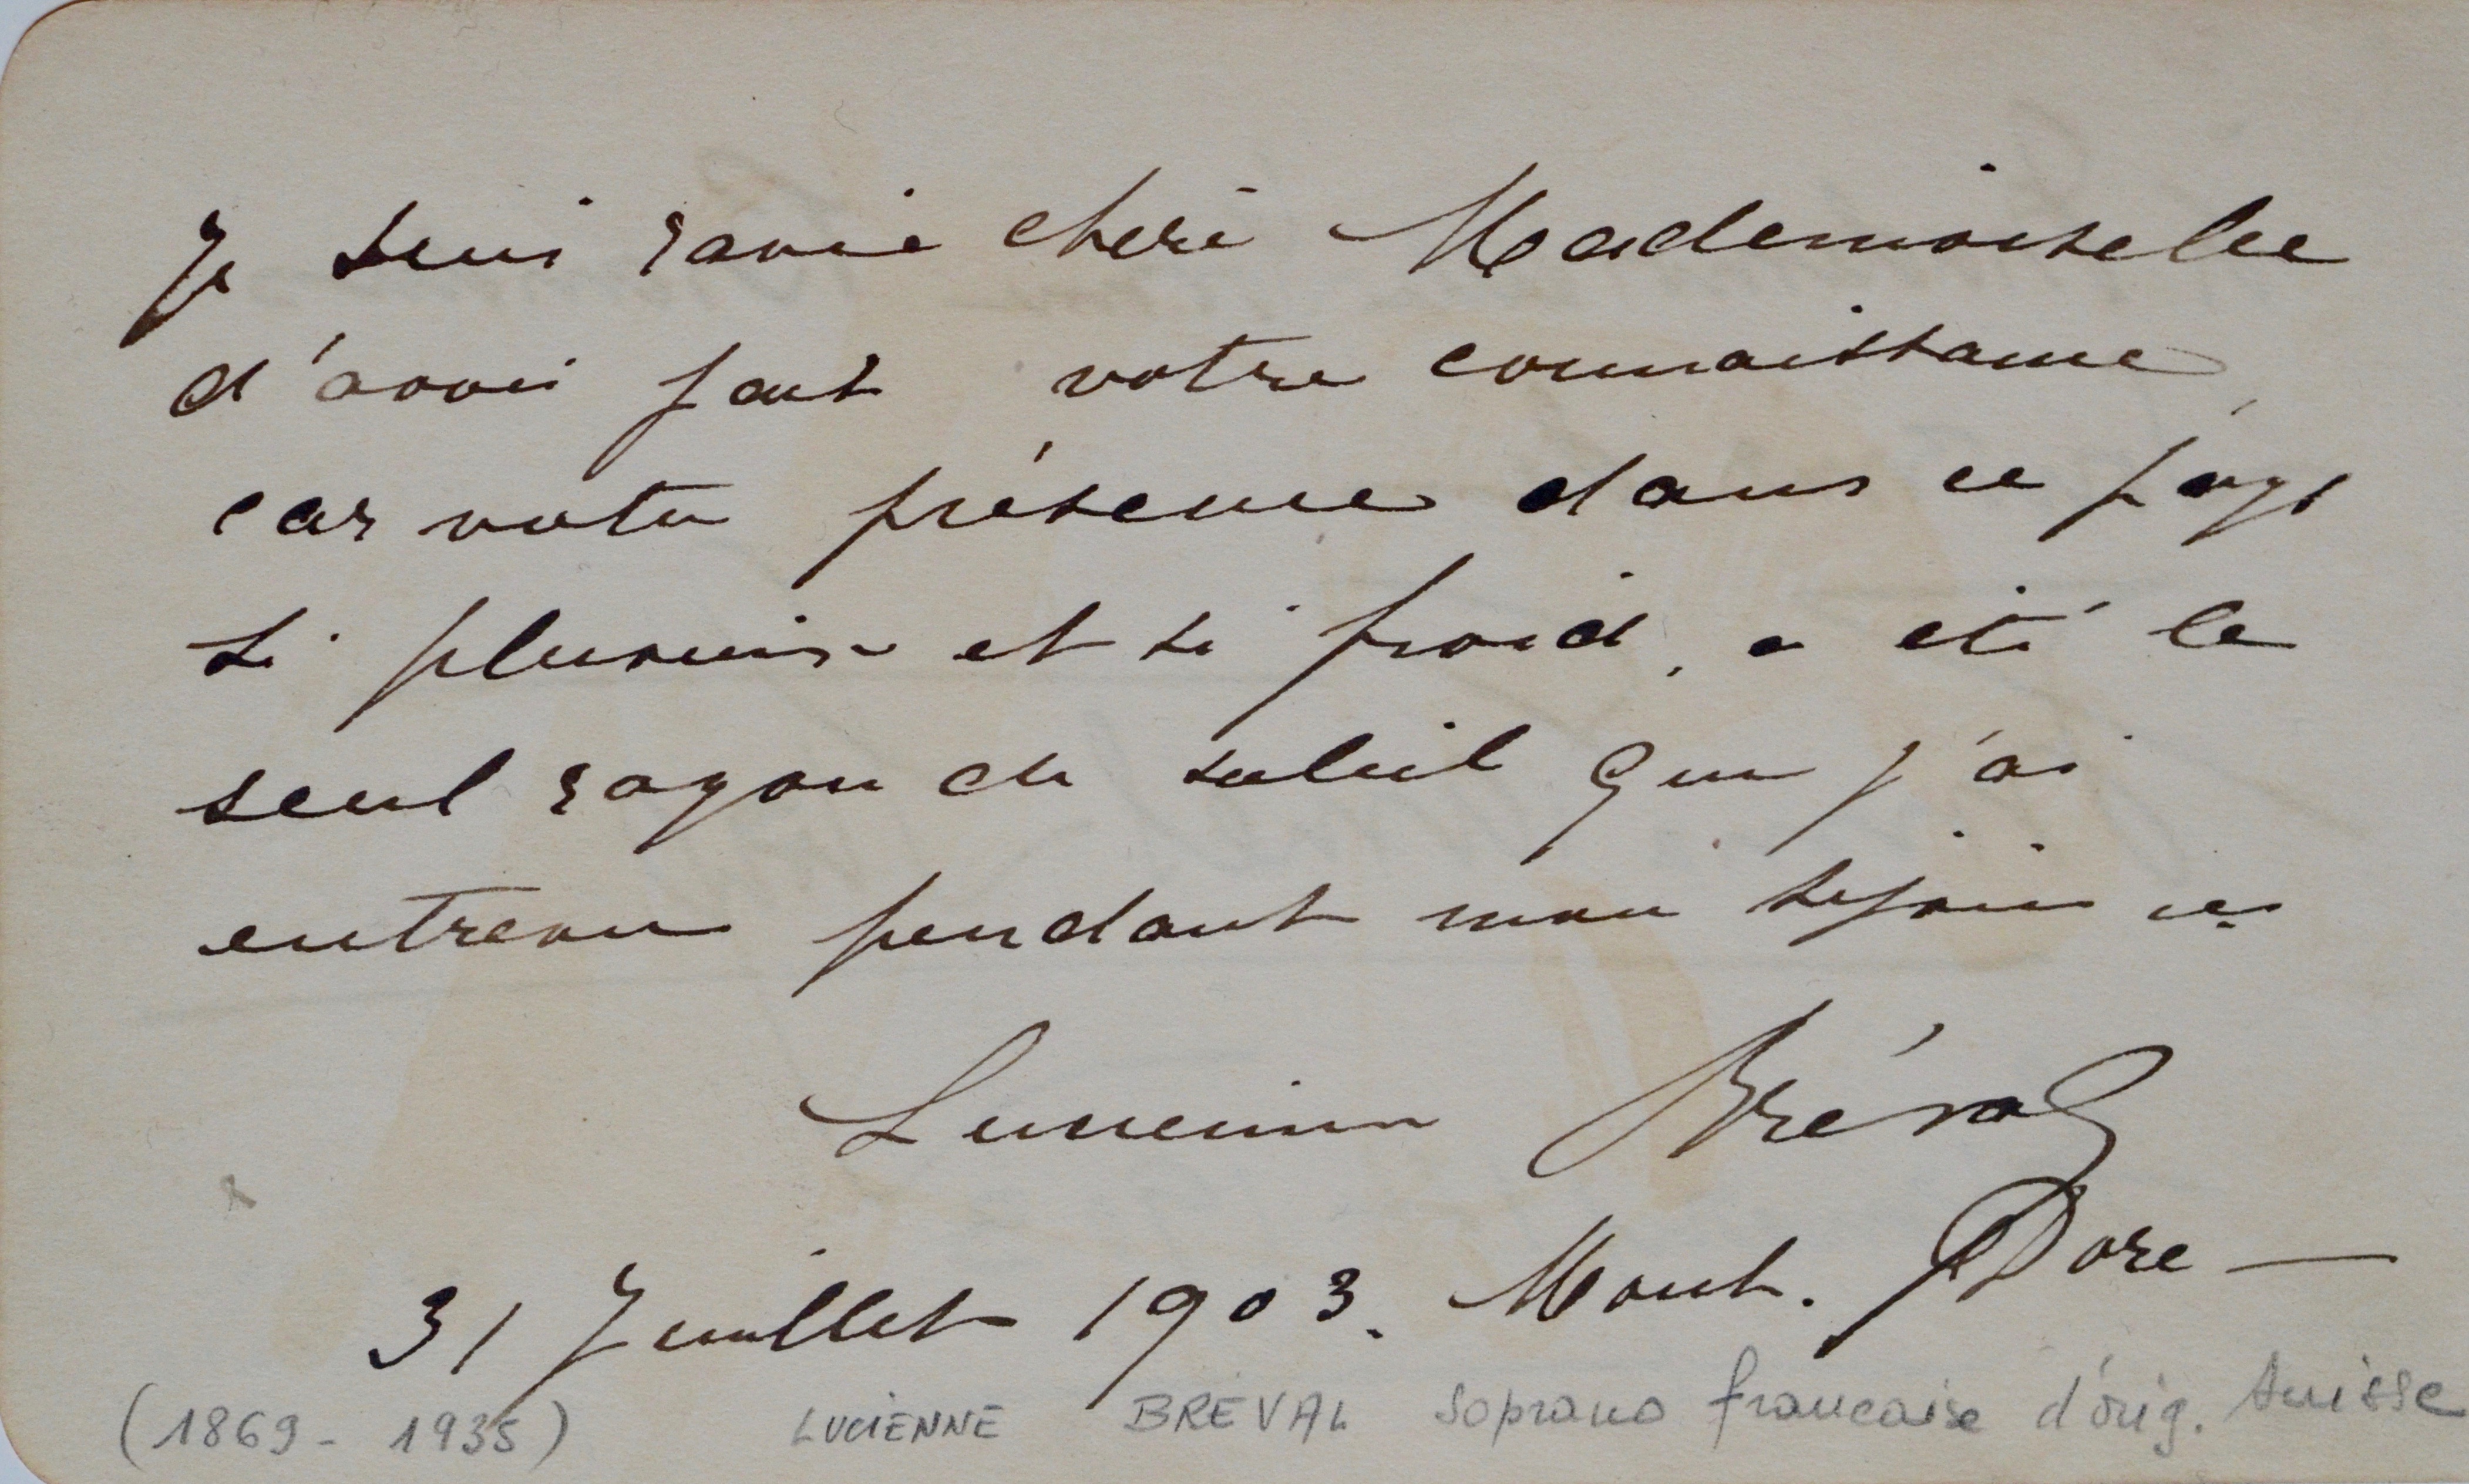 Je suis ravie chère Mademoiselle
d'avoir fait votre connaissance,
car votre présence dans ce pays
si pluvieux et si froid, a été le
seul rayon de soleil que j'ai
entrevu pendant mon séjour ici
Lucienne Bréval
31 Juillet 1903. Mont. Dore —
(1869 - 1935) LUCIENNE BRÉVAL Soprano française d'orig. Suisse